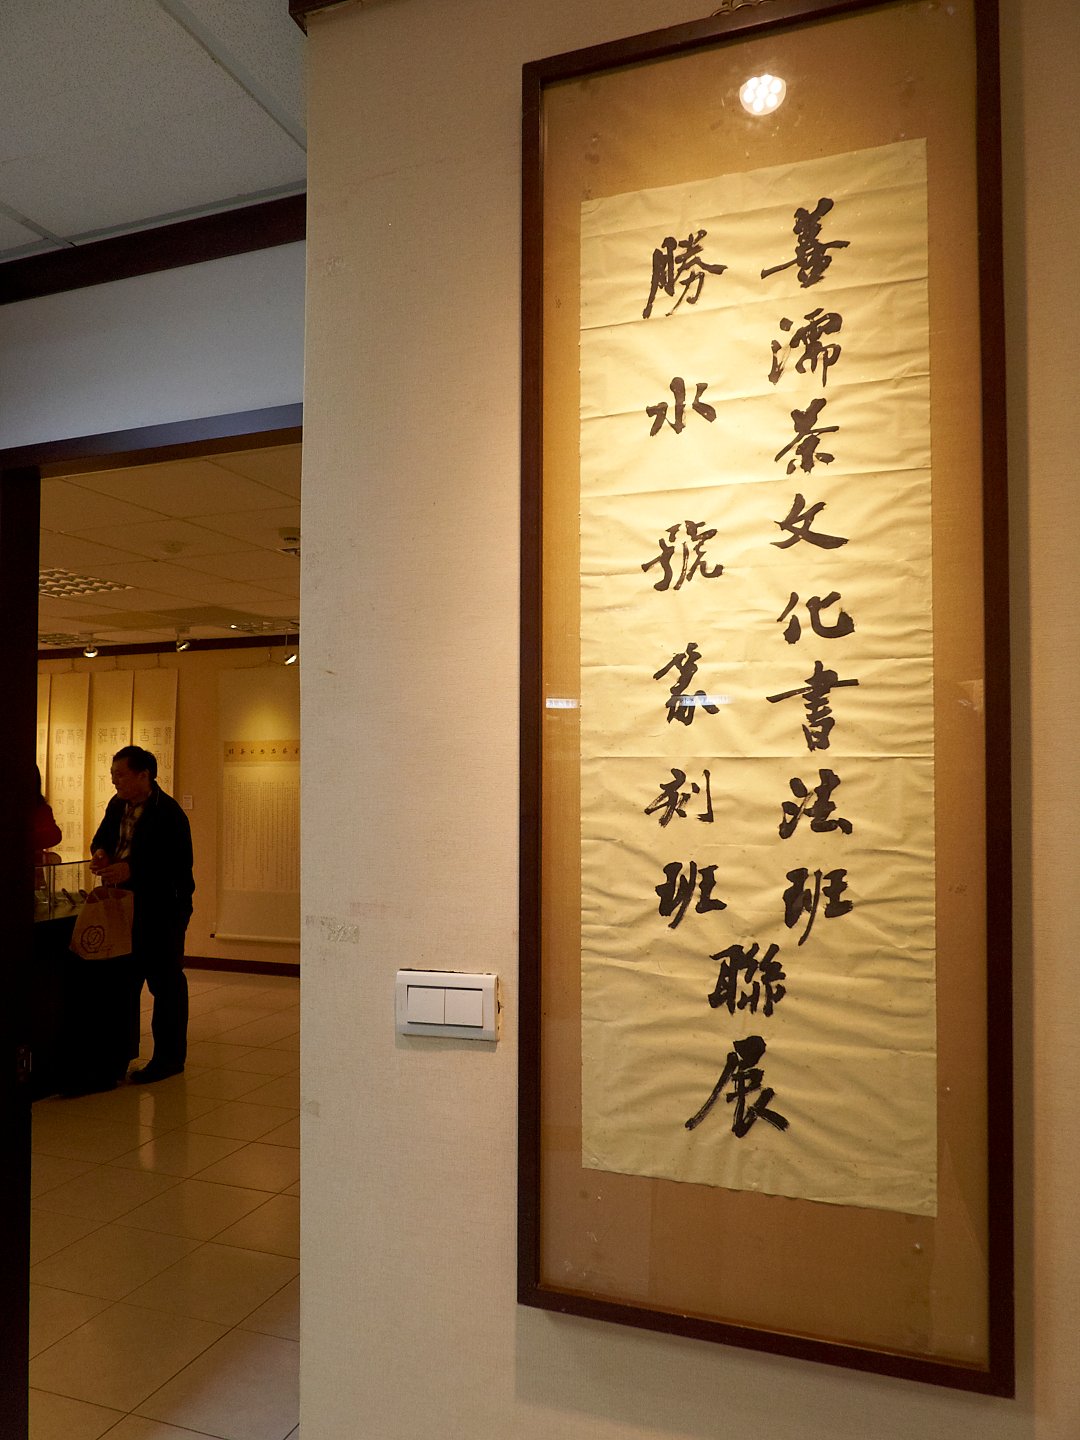 善濡茶文化書法班
勝水號篆刻班
聯展